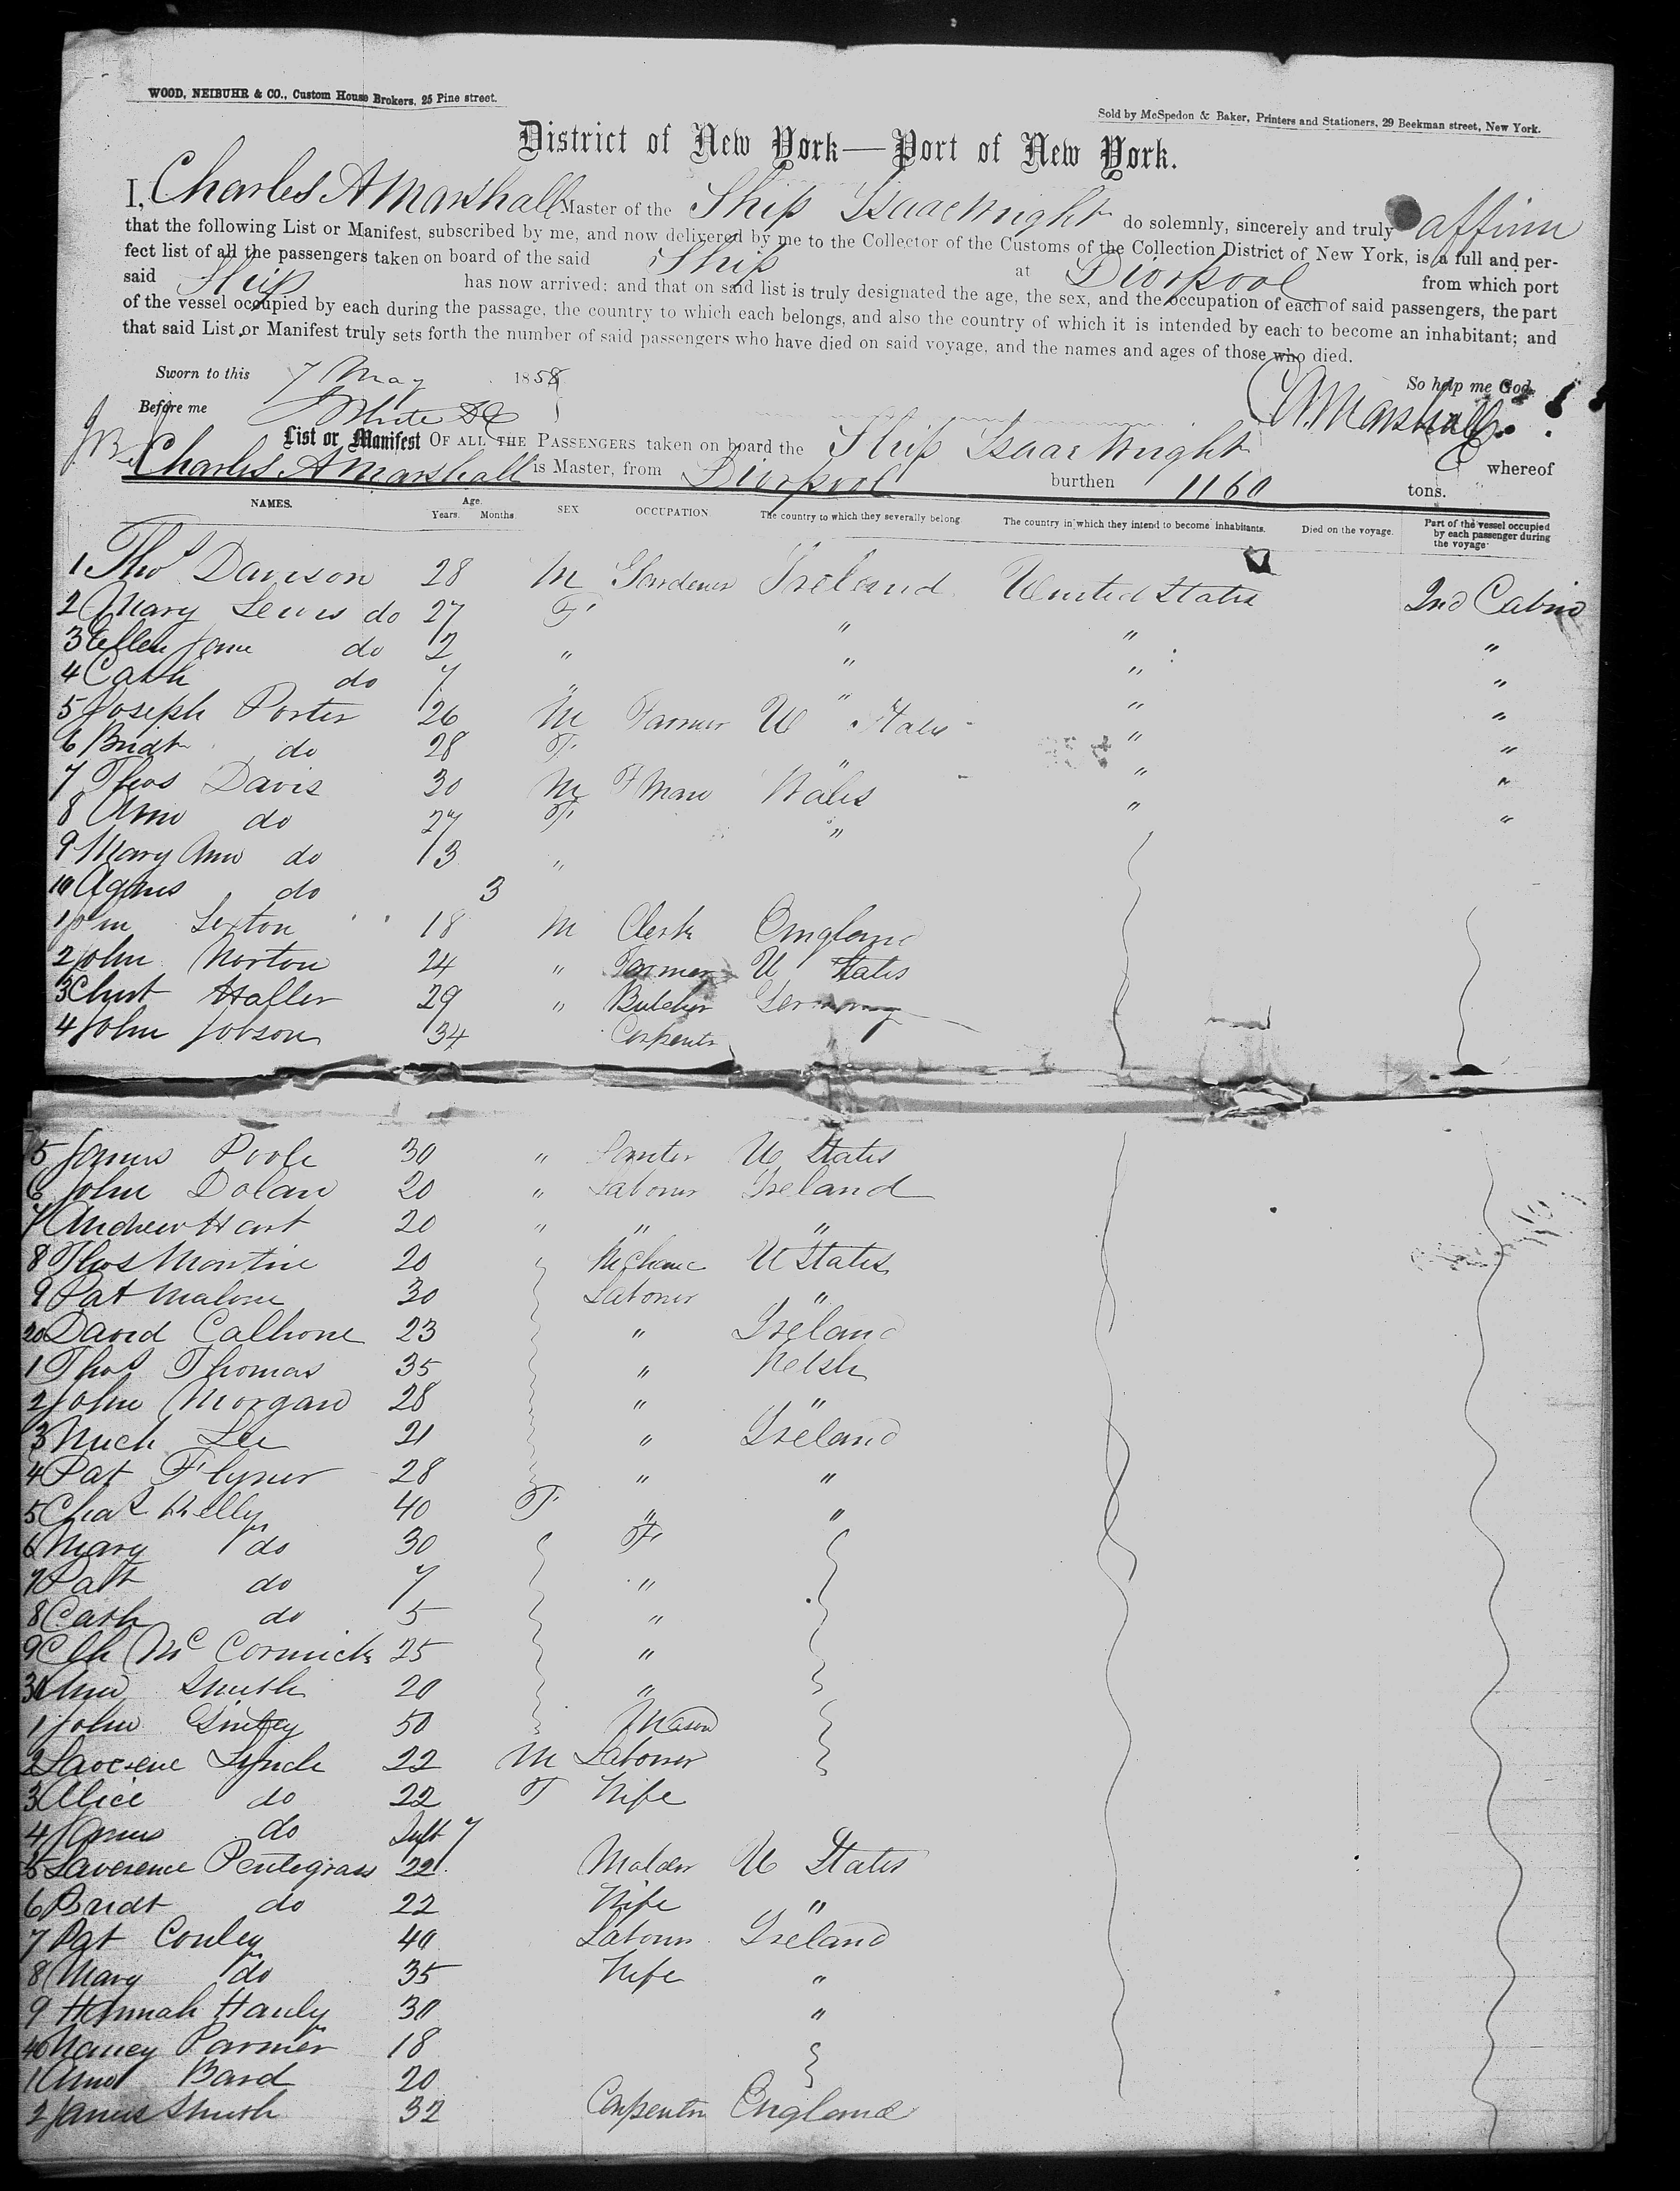 WOOD, NEIBUHR & CO., Custom House Brokers, 25 Pine street.
Sold by McSpedon & Baker, Printers and Stationers, 29 Beekman street, New York.
District of New York—Port of New York.
I, Charles A Marshall Master of the Ship Isaac Wright do solemnly, sincerely and truly affirm
that the following List or Manifest, subscribed by me, and now delivered by me to the Collector of the Customs of the Collection District of New York, is a full and per-
fect list of all the passengers taken on board of the said Ship at Liverpool from which port
said Ship has now arrived: and that on said list is truly designated the age, the sex, and the occupation of each of said passengers, the part
of the vessel occupied by each during the passage, the country to which each belongs, and also the country of which it is intended by each to become an inhabitant; and
that said List or Manifest truly sets forth the number of said passengers who have died on said voyage, and the names and ages of those who died.
Sworn to this 7 May 1858 So help me God.
Before me White CAMarshall
List or Manifest OF ALL THE PASSENGERS taken on board the Ship Isaac Wright whereof
Charles A Marshall is Master, from Liverpool burthen 1160 tons.
NAMES. Age. Years. Months. SEX OCCUPATION The country to which they severally belong. The country in which they intend to become inhabitants. Died on the voyage. Part of the vessel occupied by each passenger during the voyage
1 Thos Davison 28 M Gardener Ireland United States 2nd Cabin
2 Mary Lewis do 27 F " " "
3 Ellen Jane do 2 " " " "
4 Cath do 7 " " " "
5 Joseph Porter 26 M Farmer U States " "
6 Bridt do 28 F " " "
7 Thos Davis 30 M F Man Wales " "
8 Ann do 27 F "
9 Mary Ann do 13 "
10 Agnes do 3
1 Jn Sexton 18 M Clerk England
2 John Norton 24 " Farmer U States
3 Christ Hafler 29 " Butcher Germany
4 John Jobson 34 Carpentr
5 James Poole 30 " U States
6 John Dolan 20 " Laborer Ireland
7 Andrew Hart 20 " " "
8 Thos Martin 20 Mchanic U States
9 Pat Malone 30 Laborer "
20 David Calhone 23 " Ireland
1 Thos Thomas 35 " Welsh
2 John Morgan 28 " "
3 Mich Lee 21 " Ireland
4 Pat Flynn 28 " "
5 Chas Kelly 40 F " "
6 Mary do 30 F
7 Patt do 7 "
8 Cath do 5 "
9 McCormick 25 "
30 Ann Smith 20 "
1 John 50 Mason
2 Lawrence Lynch 22 M Laborer
3 Alice do 22 F Wife
4 James do Inft 7
5 Laverence Pentegrass 22 Molder U States
6 Bridt do 22 Wife "
7 Pat Conley 40 Laborer Ireland
8 Mary do 35 Wife "
9 Hannah Hanly 30 "
40 Nancy Parmer 18
1 Ann Bard 20
2 James Smith 32 Carpentr England